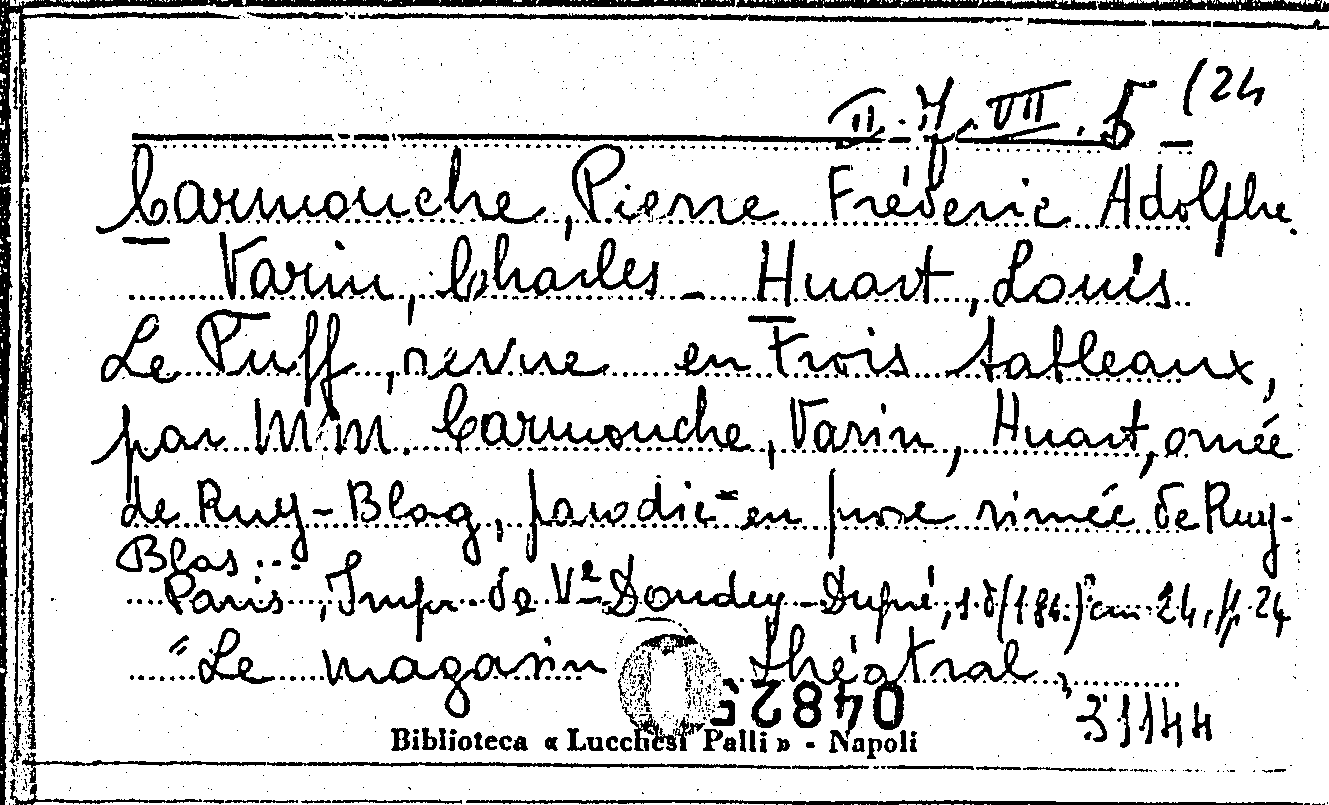 II. 7. VII. 5 (24
Carmouche, Pierre Fréderic Adolphe.
Varin, Charles - Huart, Louis
Le Puff, revue en trois tableaux,
par MM. Carmouche, Varin, Huart, ornée
de Ruy-Blag, parodie en prose rimée de Ruy-
Blas...
Paris, Impr. de Vᵉ Dondey-Dupré, s.d. cm 24, p. 24
"Le magasin théatral"
04825
31144
Biblioteca « Lucchesi Palli » - Napoli